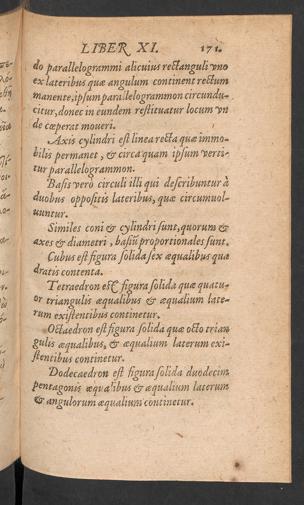 LIBER XI. 171.
do parallelogrammi alicuius rectanguli vno
ex lateribus quæ angulum continent rectum
manente, ipsum parallelogrammon circundu-
citur, donec in eundem restituatur locum vn
de cœperat moueri.
Axis cylindri est linea recta quæ immo-
bilis permanet, & circa quam ipsum verti-
tur parallelogrammon.
Basis verò circuli illi qui describuntur à
duobus oppositis lateribus, quæ circumuol-
uuntur.
Similes coni & cylindri sunt, quorum &
axes & diametri, basiū proportionales sunt.
Cubus est figura solida sex æqualibus qua
dratis contenta.
Tetraedron est figura solida quæ quatu-
or triangulis æqualibus & æqualium late-
rum existentibus continetur.
Octaedron est figura solida quæ octo trian
gulis æqualibus, & æqualium laterum exi-
stentibus continetur.
Dodecaedron est figura solida duodecim
pentagonis æqualibus & æqualium laterum
& angulorum æqualium continetur.